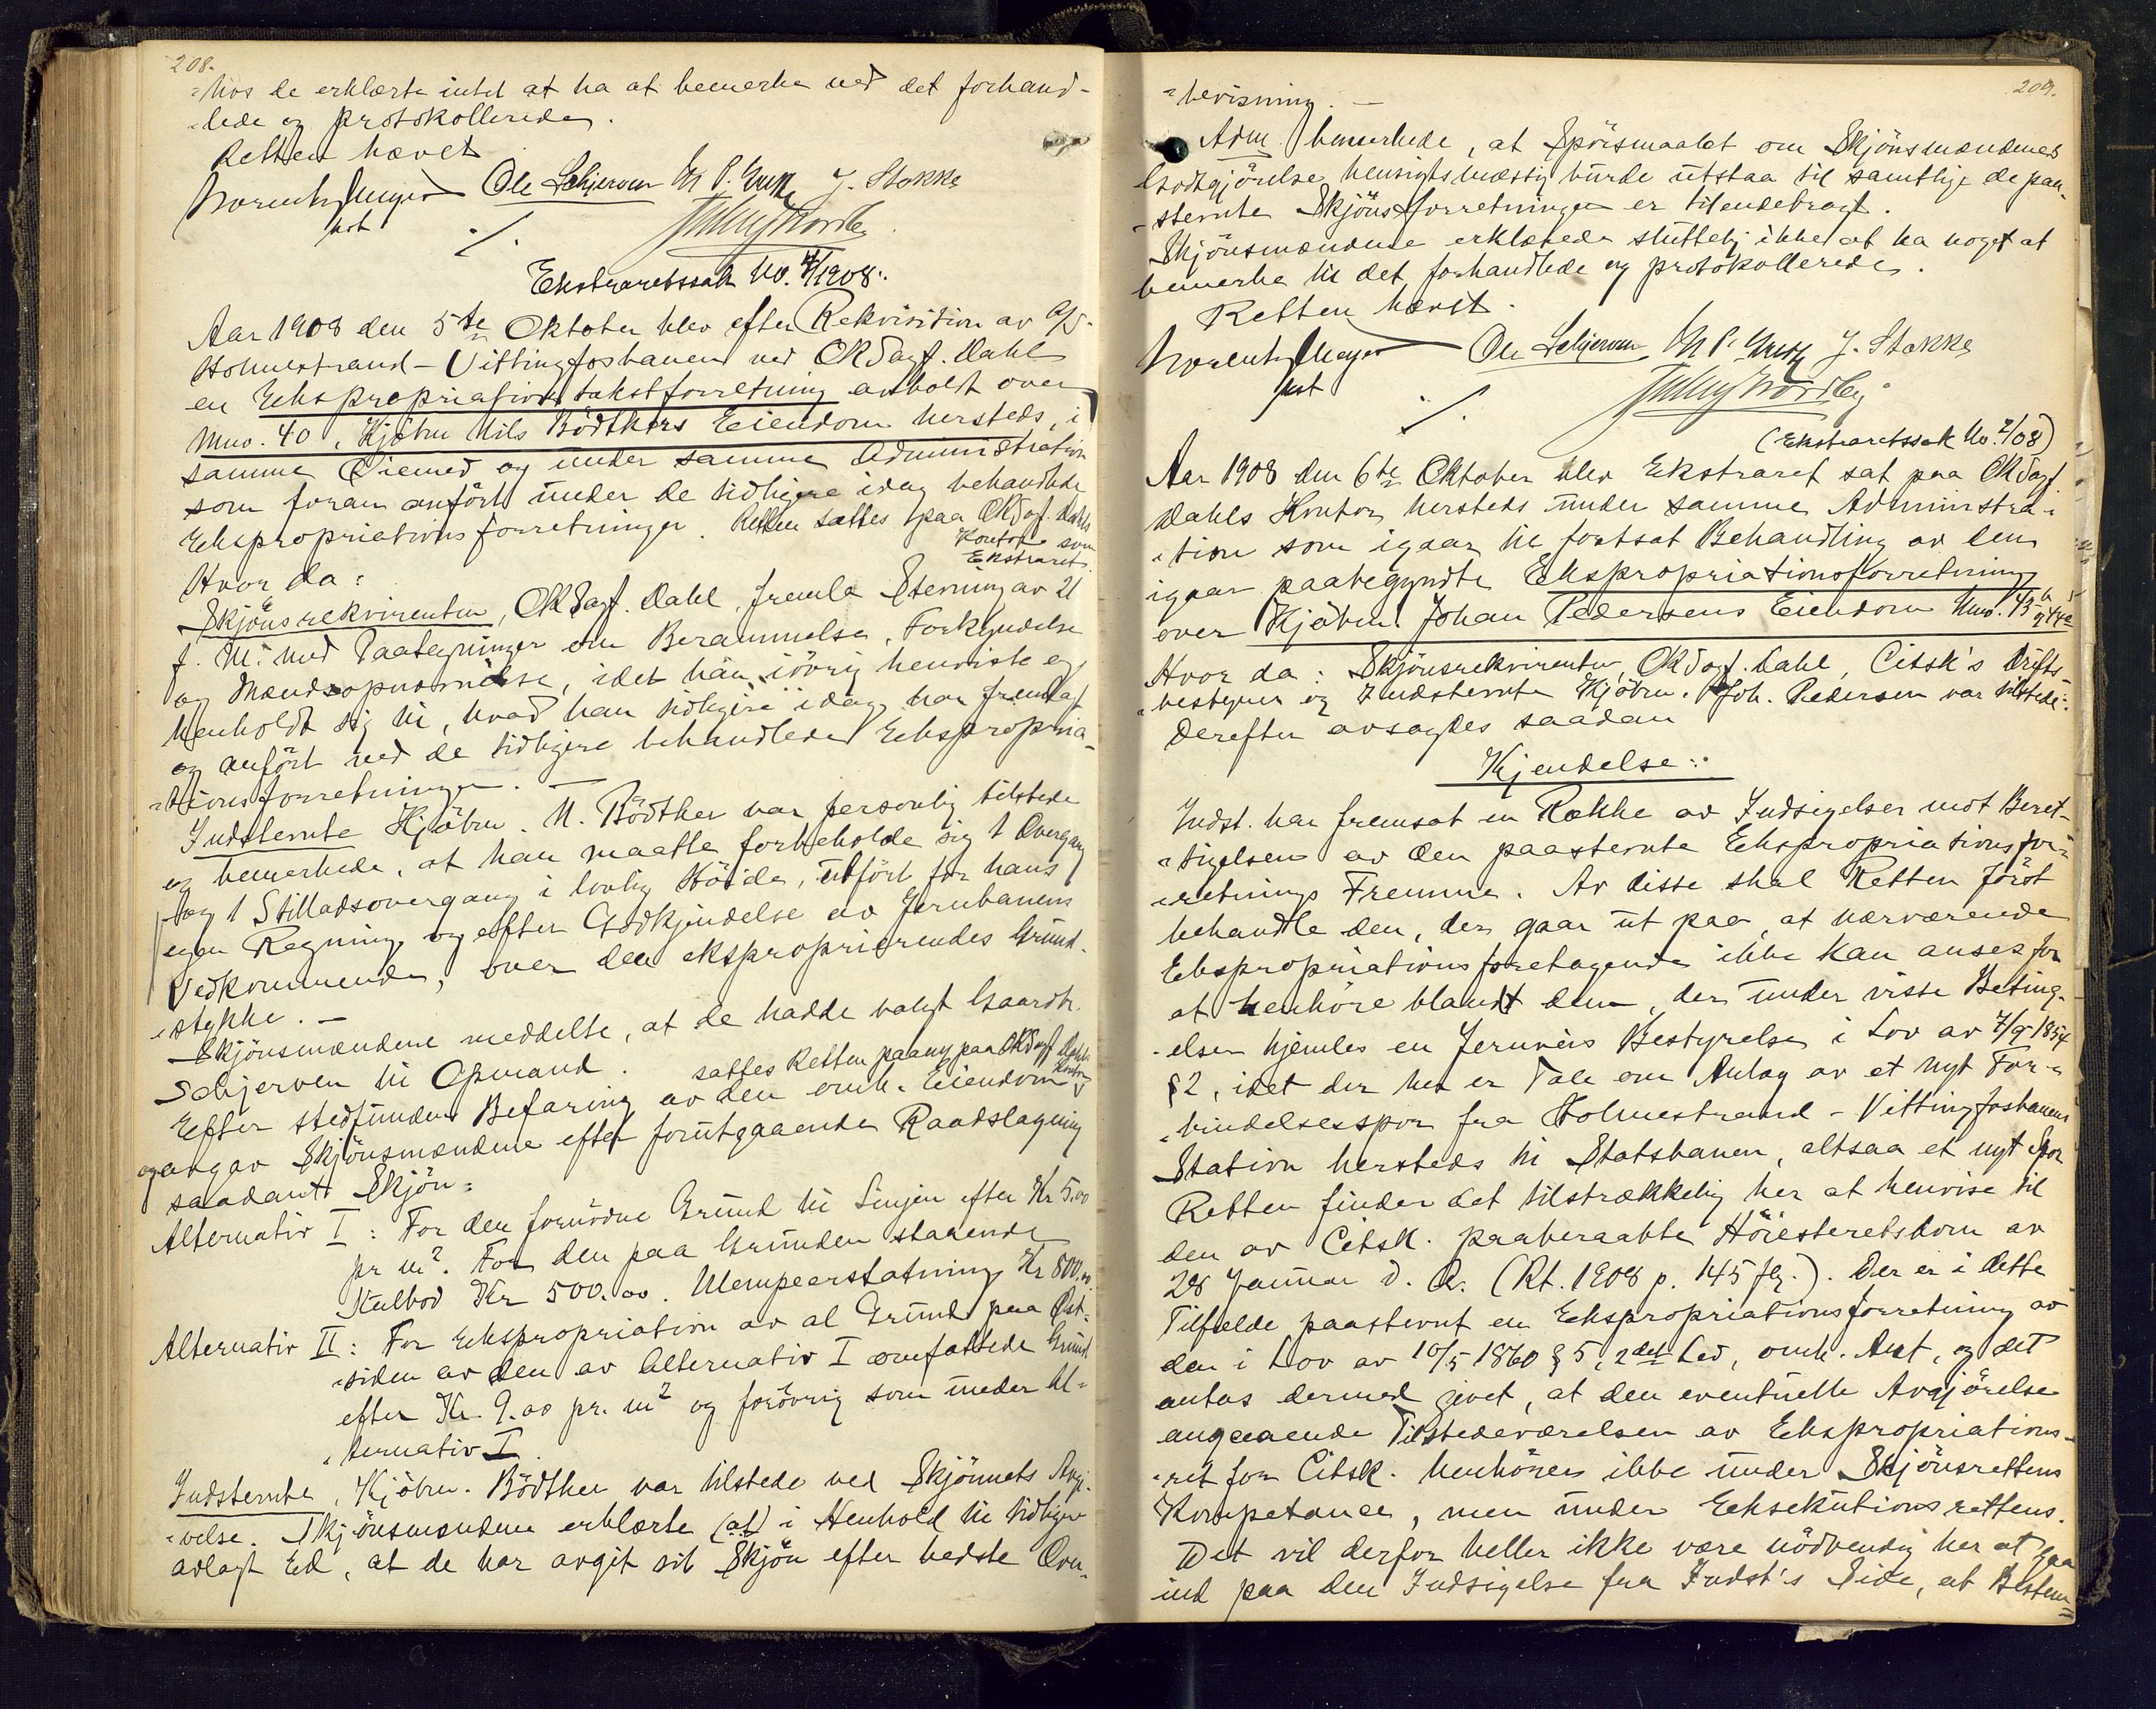 208.
-hos de erklærte intet at ha at bemerke ved det forhand-
-lede og protokollerede.
Retten hævet
Ole Schjerven J. Stokke
cst
./.
Ekstraretssak No. 4/1908..
Aar 1908 den 5te Oktober blev efter Rekvisition av A/S.
Holmestrand-Vittingfosbanen ved OKSagf. Dahl
en Ekspropriationstakstforretning avholdt over
Mno. 40, Kjøbm Nils Bödtkers Eiendom hersteds, i
samme Öiemed og under samme Administration
som foran anfört under de tidligere idag behandlede
Ekspropriationsforretninger. Retten sattes paa OKSagf. Dahls
Kontor som
Ekstraret.
Hvor da:
Skjönsrekvirenten, OKSagf. Dahl, fremla Stevning av 21
f. M. med Paategninger om Berammelse, Forkyndelse
og Mændsopnævnelse, idet han iövrig henviste og
henholdt sig til, hvad han tidligere idag har fremlagt
og anfört ved de tidligere behandlede Ekspropria-
-tionsforretninger. -
Indstevnte Kjöbm. N. Bödtker var personlig tilstede
og bemerkede, at han maatte forbeholde sig 1 Overgang
og 1 Stilladsovergang i lovlig Höide, utfört for hans
egen Regning og efter Godkjendelse av Jernbanens
Vedkommende, over det eksproprierendes Grund-
-stykke. -
Skjönsmændene meddelte, at de hadde valgt Gaardbr.
Schjerven til Opmand.
sattes Retten paany paa OKSagf. Dahls
Kontor
Efter stedfunden Befaring av den omh. Eiendom
og avgav Skjönsmændene efter forutgaaende Raadslagning
saadant Skjön:
Alternativ I: For den fornödne Grund til Linjen efter Kr 5.00
pr m². For den paa Grunden staaende
Kulbod Kr 500.00. Ulempeerstatning Kr 800.00
Alternativ II: For Ekspropriation av al Grund paa Öst-
-siden av den av Alternativ I omfattede Grund
efter Kr. 9.00 pr. m² og forövrig som under Al-
-ternativ I.
Indstevnte, Kjöbm. Bödtker var tilstede ved Skjönnets Avgi-
-velse. Skjönsmændene erklærte (at) i Henhold til tidligere
avlagt Ed, at de har avgit sit Skjön efter bedste Over-
209.
-bevisning. -
Adm. bemerkede, at Spörsmaalet om Skjönsmændenes
Godtgjörelse hensigtsmæssig burde utstaa til samtlige de paa-
-stevnte Skjönsforretninger er tilendebragt.
Skjönsmændene erklærede sluttelig ikke at ha noget at
bemerke til det forhandlede og protokollerede.
Retten hævet.
Ole Schjerven J. Stokke
cst
./.
(Ekstraretssak No. 2/08)
Aar 1908 den 6te Oktober blev Ekstraret sat paa OKSagf.
Dahls Kontor hersteds under samme Administra-
-tion som igaar til fortsat Behandling av den
igaar paabegyndte Ekspropriationsforretning
over Kjöbm. Johan Pedersens Eiendom Mno. 43
Hvor da: Skjönsrekvirenten, OKSagf. Dahl, Citsk's Drifts-
-bestyrer og Indstevnte Kjöbm. Joh. Pedersen var tilstede.
Derefter avsagdes saadan
Kjendelse:
Indst. har fremsat en Række av Indsigelser mot Beret-
-tigelsen av den paastevnte Ekspropriationsfor-
-retnings Fremme. Av disse skal Retten först
behandle den, der gaar ut paa, at nærværende
Ekspropriationsforetagende ikke kan anses for
at henhöre blandt dem, der under visse Beting-
-elser hjemles en Jernveis Bestyrelse i Lov av 7/9 1854
§ 2, idet der her er Tale om Anlæg av et nyt For-
-bindelsesspor fra Holmestrand-Vittingfosbanens
Station hersteds til Statsbanen, altsaa et nyt Spor
Retten finder det tilstrækkelig her at henvise til
den av Citsk. paaberaabte Höiesteretsdom av
28 Januar d. A. (Rt. 1908 p. 145 flg.). Der er i dette
Tilfælde paastevnt en Ekspropriationsforretning av
den i Lov av 10/5 1860 § 5, 2det Led, omh. Art, og det
antas dermed givet, at den eventuelle Avgjörelse
angaaende Tilstedeværelsen av Ekspropriations-
-ret for Citsk. henhörer ikke under Skjönsrettens
Kompetance, men under Eksekutionsrettens.
Det vil derfor heller ikke være nödvendig her at gaa
ind paa den Indsigelse fra Indst's Side, at Bestem-